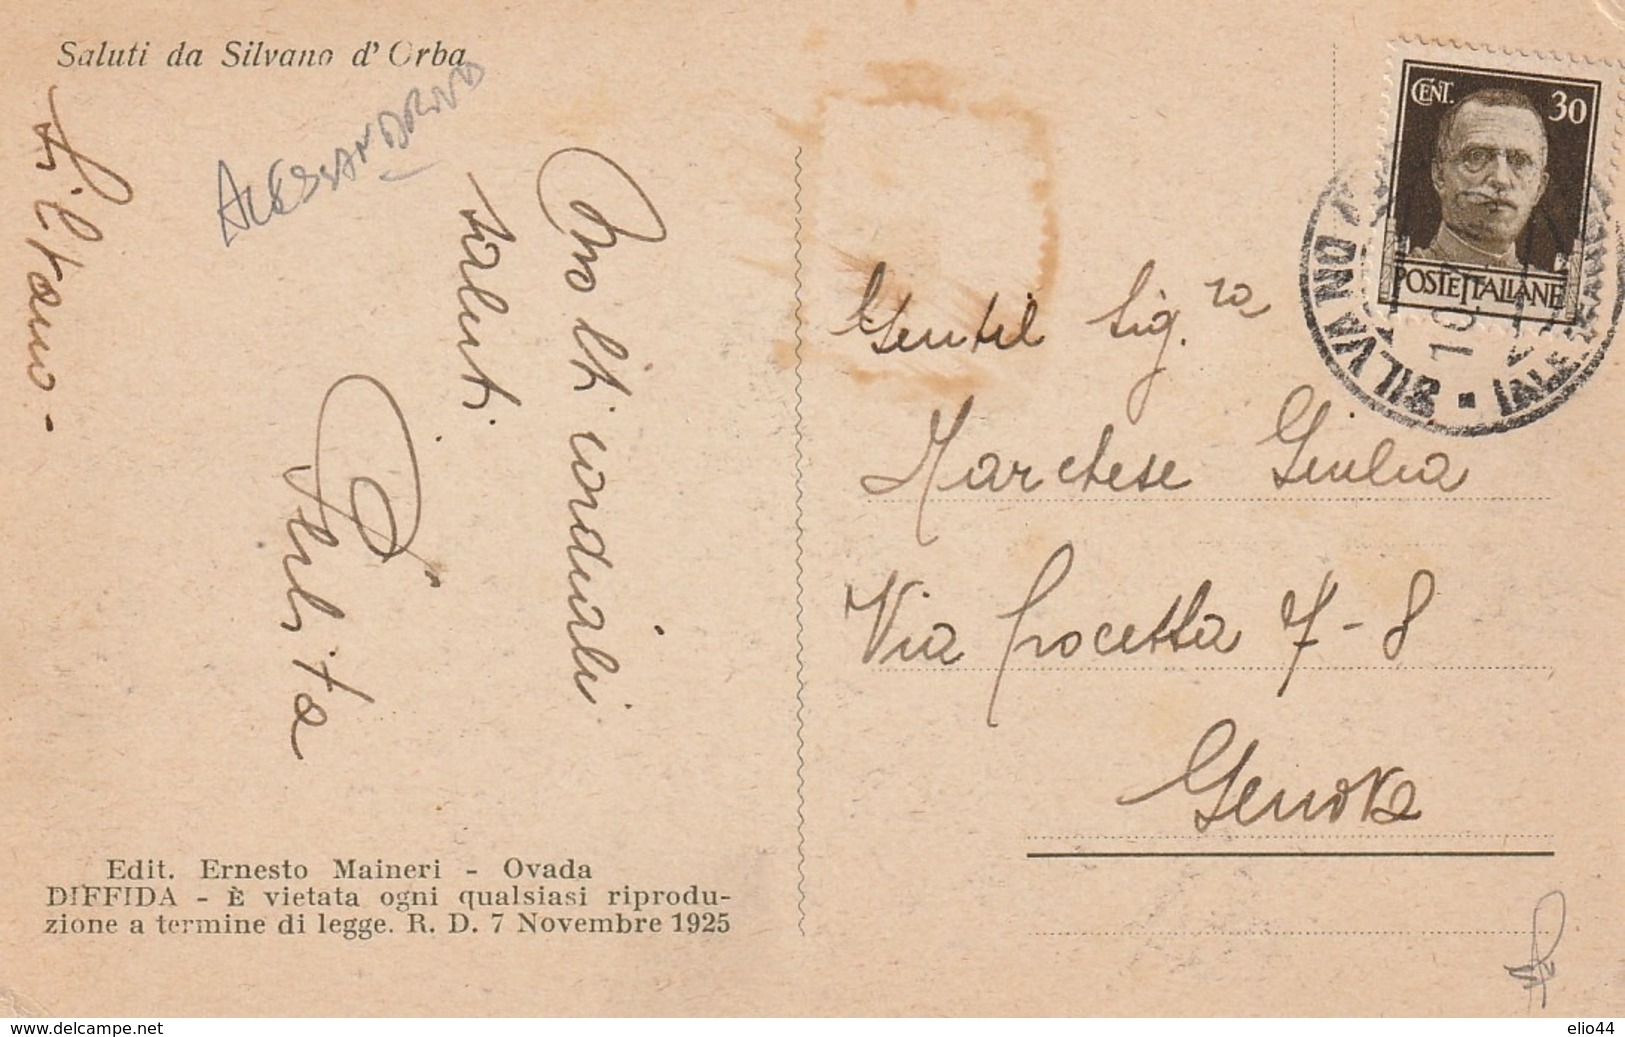 Saluti da Silvano d' Orba
ALESSANDRINO
Silvano -
Molti cordiali
saluti
Gentil Sig.ra
Marchese Giulia
Via Crocetta 7 - 8
Genova
CENT. 30
POSTE ITALIANE
SILVANO
10
Edit. Ernesto Maineri - Ovada
DIFFIDA - È vietata ogni qualsiasi riprodu-
zione a termine di legge. R. D. 7 Novembre 1925
www.delcampe.net
elio44